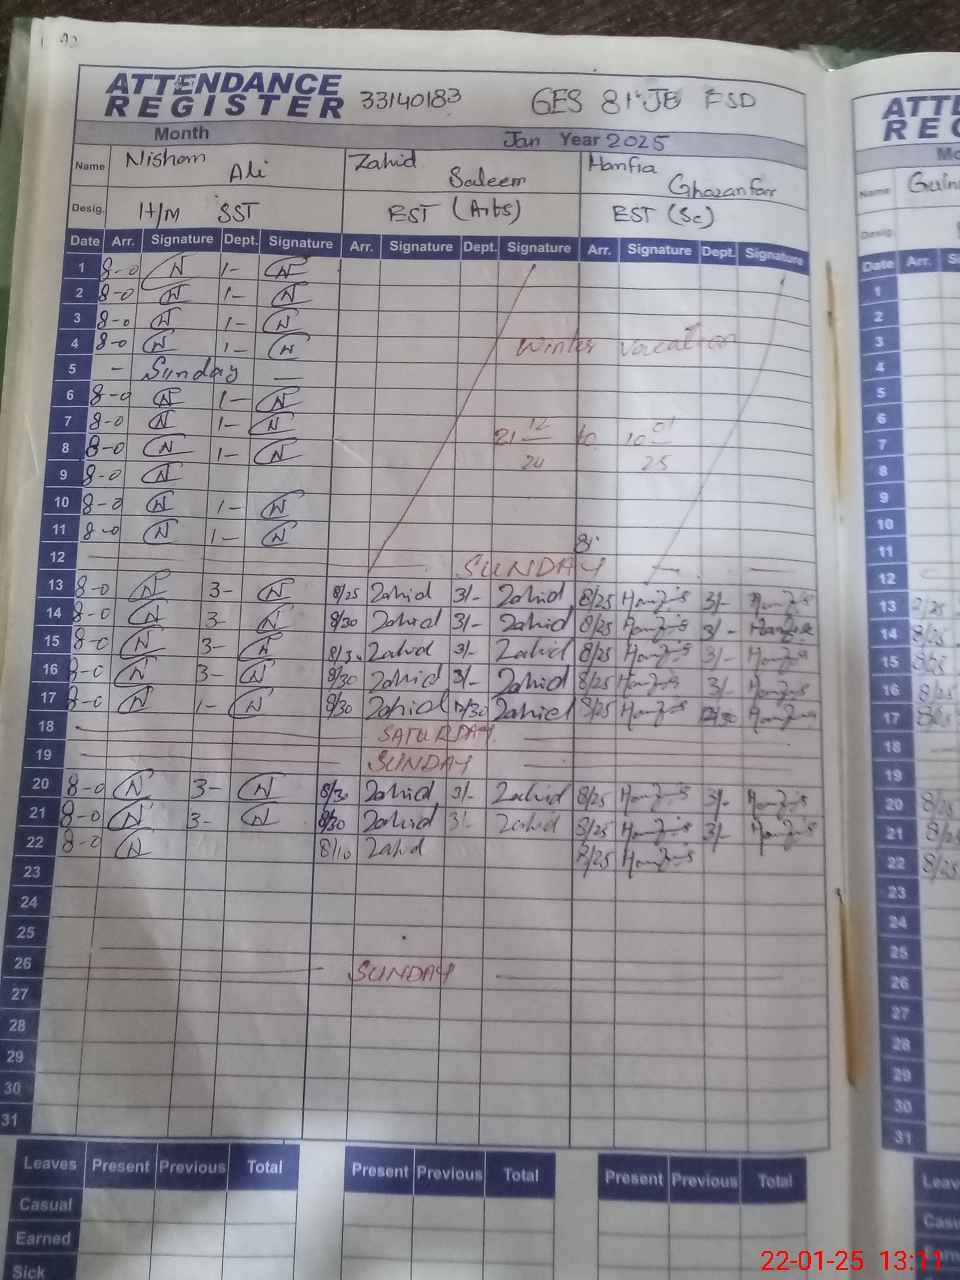 ATTENDANCE
REGISTER 33140183 GES 81 JB FSD
Month Jan Year 2025
Name Nisham Ali Zahid Saleem Hanfia Ghazanfar
Desig. H/M SST EST (Arts) EST (Sc)
Date Arr. Signature Dept. Signature Arr. Signature Dept. Signature Arr. Signature Dept. Signature
1 8-0 N 1- N
2 8-0 N 1- N
3 8-0 N 1- N
4 8-0 N 1- N Winter Vacation
5 - Sunday -
6 8-0 N 1- N
7 8-0 N 1- N 21 12/24 to 10 01/25
8 8-0 N 1- N
9 8-0 N
10 8-0 N 1- N
11 8-0 N 1- N
12 SUNDAY
13 8-0 N 3- N 8/25 Zahid 3/- Zahid 8/25 3/-
14 8-0 N 3- N 8/30 Zahid 3/- Zahid 8/25 3/-
15 8-0 N 3- N 8/30 Zahid 3/- Zahid 8/25 3/-
16 8-0 N 3- N 8/30 Zahid 3/- Zahid 8/25 3/-
17 8-0 N 1- N 8/30 Zahid 12/30 Zahid 8/25 12/30
18 SATURDAY
19 SUNDAY
20 8-0 N 3- N 8/30 Zahid 3/- Zahid 8/25 3/-
21 8-0 N 3- N 8/30 Zahid 3/- Zahid 8/25 3/-
22 8-0 N 8/10 Zahid
23
24
25
26 SUNDAY
27
28
29
30
31
Leaves Present Previous Total Present Previous Total Present Previous Total
Casual
Earned
Sick
Name
Desig.
Date Arr.
1
2
3
4
5
6
7
8
9
10
11
12
13
14 8/25
15 8/25
16 8/25
17 8/25
18
19
20 8/25
21 8/25
22 8/25
23
24
25
26
27
28
29
30
31
22-01-25 13:11